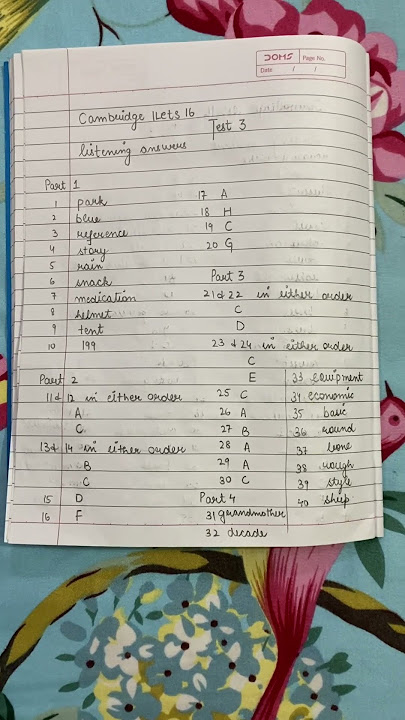 DOMS Page No.
Date / /
Cambridge IELTS 16
Test 3
listening answers
Part 1
1 park
2 blue
3 reference
4 story
5 rain
6 snack
7 medication
8 helmet
9 tent
10 199
Part 2
11 & 12 in either order
A
C
13 & 14 in either order
B
C
15 D
16 F
17 A
18 H
19 C
20 G
Part 3
21 & 22 in either order
C
D
23 & 24 in either order
C
E
25 C
26 A
27 B
28 A
29 A
30 C
Part 4
31 grandmother
32 decade
33 equipment
34 economic
35 basic
36 round
37 bone
38 rough
39 style
40 sheep